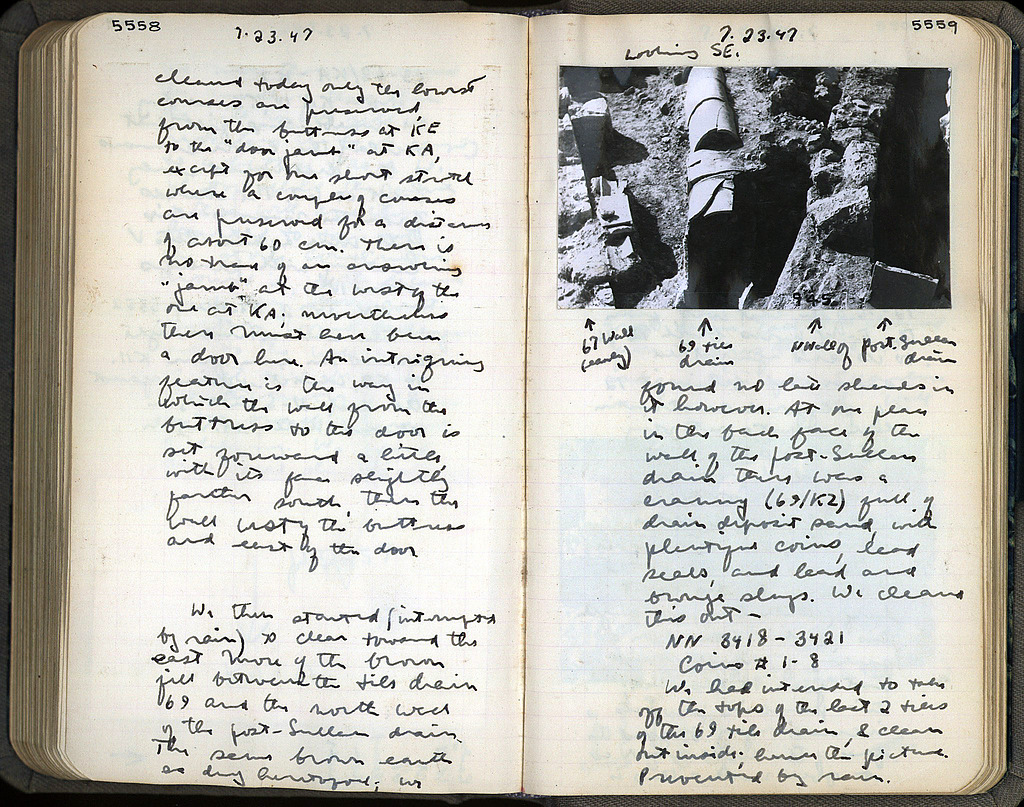 5558
7.23.47
cleared today only the lowest
courses are preserved,
from the buttress at KE
to the "door jamb" at KA,
except for one short stretch
where a couple of courses
are preserved for a distance
of about 60 cm. There is
no trace of an answering
"jamb" at the west of the
one at KA; nevertheless
there must have been
a door here. An intriguing
feature is the way in
which the wall from the
buttress to the door is
set forward a little,
with its face slightly
farther south, than the
wall west of the buttress
and east of the door
We then started (interrupted
by rain) to clear toward the
east more of the brown
fill between the tile drain
69 and the north wall
of the post-Sullan drain.
The same brown earth
as dug heretofore; we
5559
7.23.47
Looking SE.
995
67 Wall
(early)
69 tile
drain
N Wall of
post-Sullan
drain
found no late sherds in
it however. At one place
in the back face of the
wall of the post-Sullan
drain there was a
cranny (69/KZ) full of
drain deposit sand, with
plentiful coins, lead
seals, and lead and
bronze slugs. We cleaned
this out -
NN 3418 - 3421
Coins # 1-8
We had intended to take
off the tops of the last 2 tiles
of the 69 tile drain, & clean
out inside; hence the picture.
Prevented by rain.